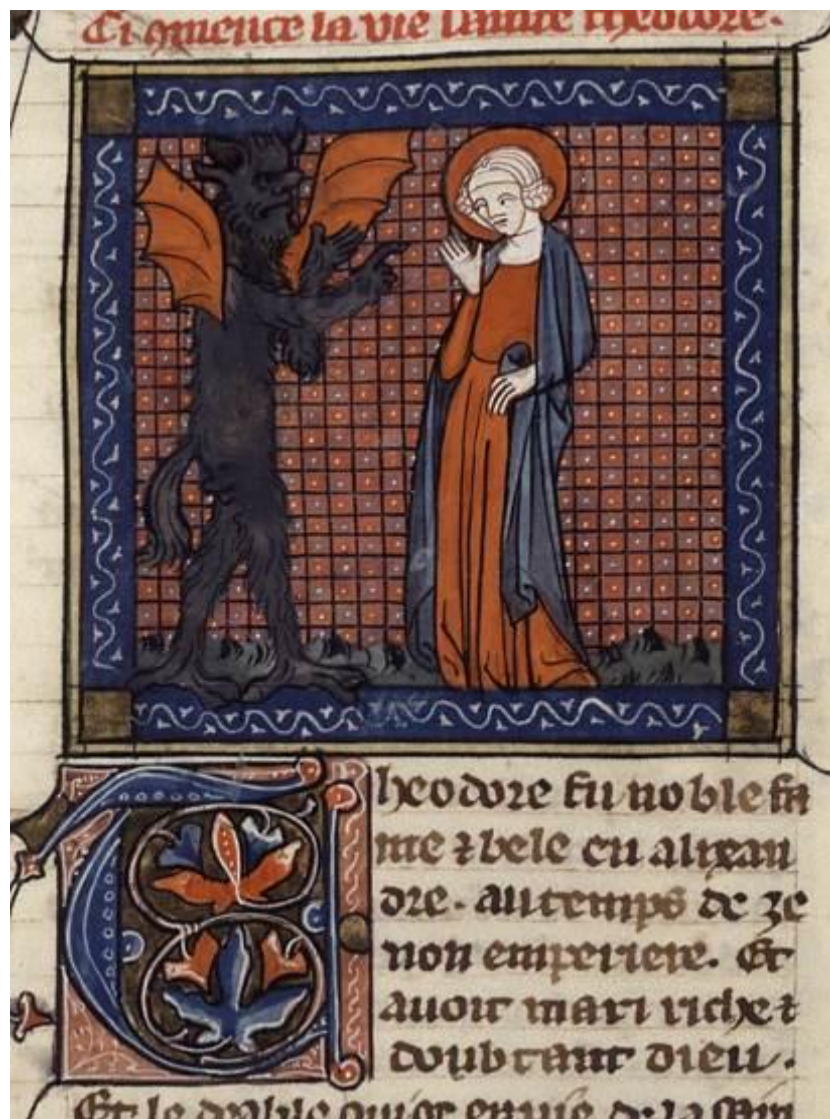 Ci ɔmence la vie sainte theodore.
Theodore fu noble fa
me ⁊ bele en alixan
dre. au temps de ze
non emperiere. Et
avoit mari riche ⁊
doubtant dieu.
Et le dyable qui ot envie de la